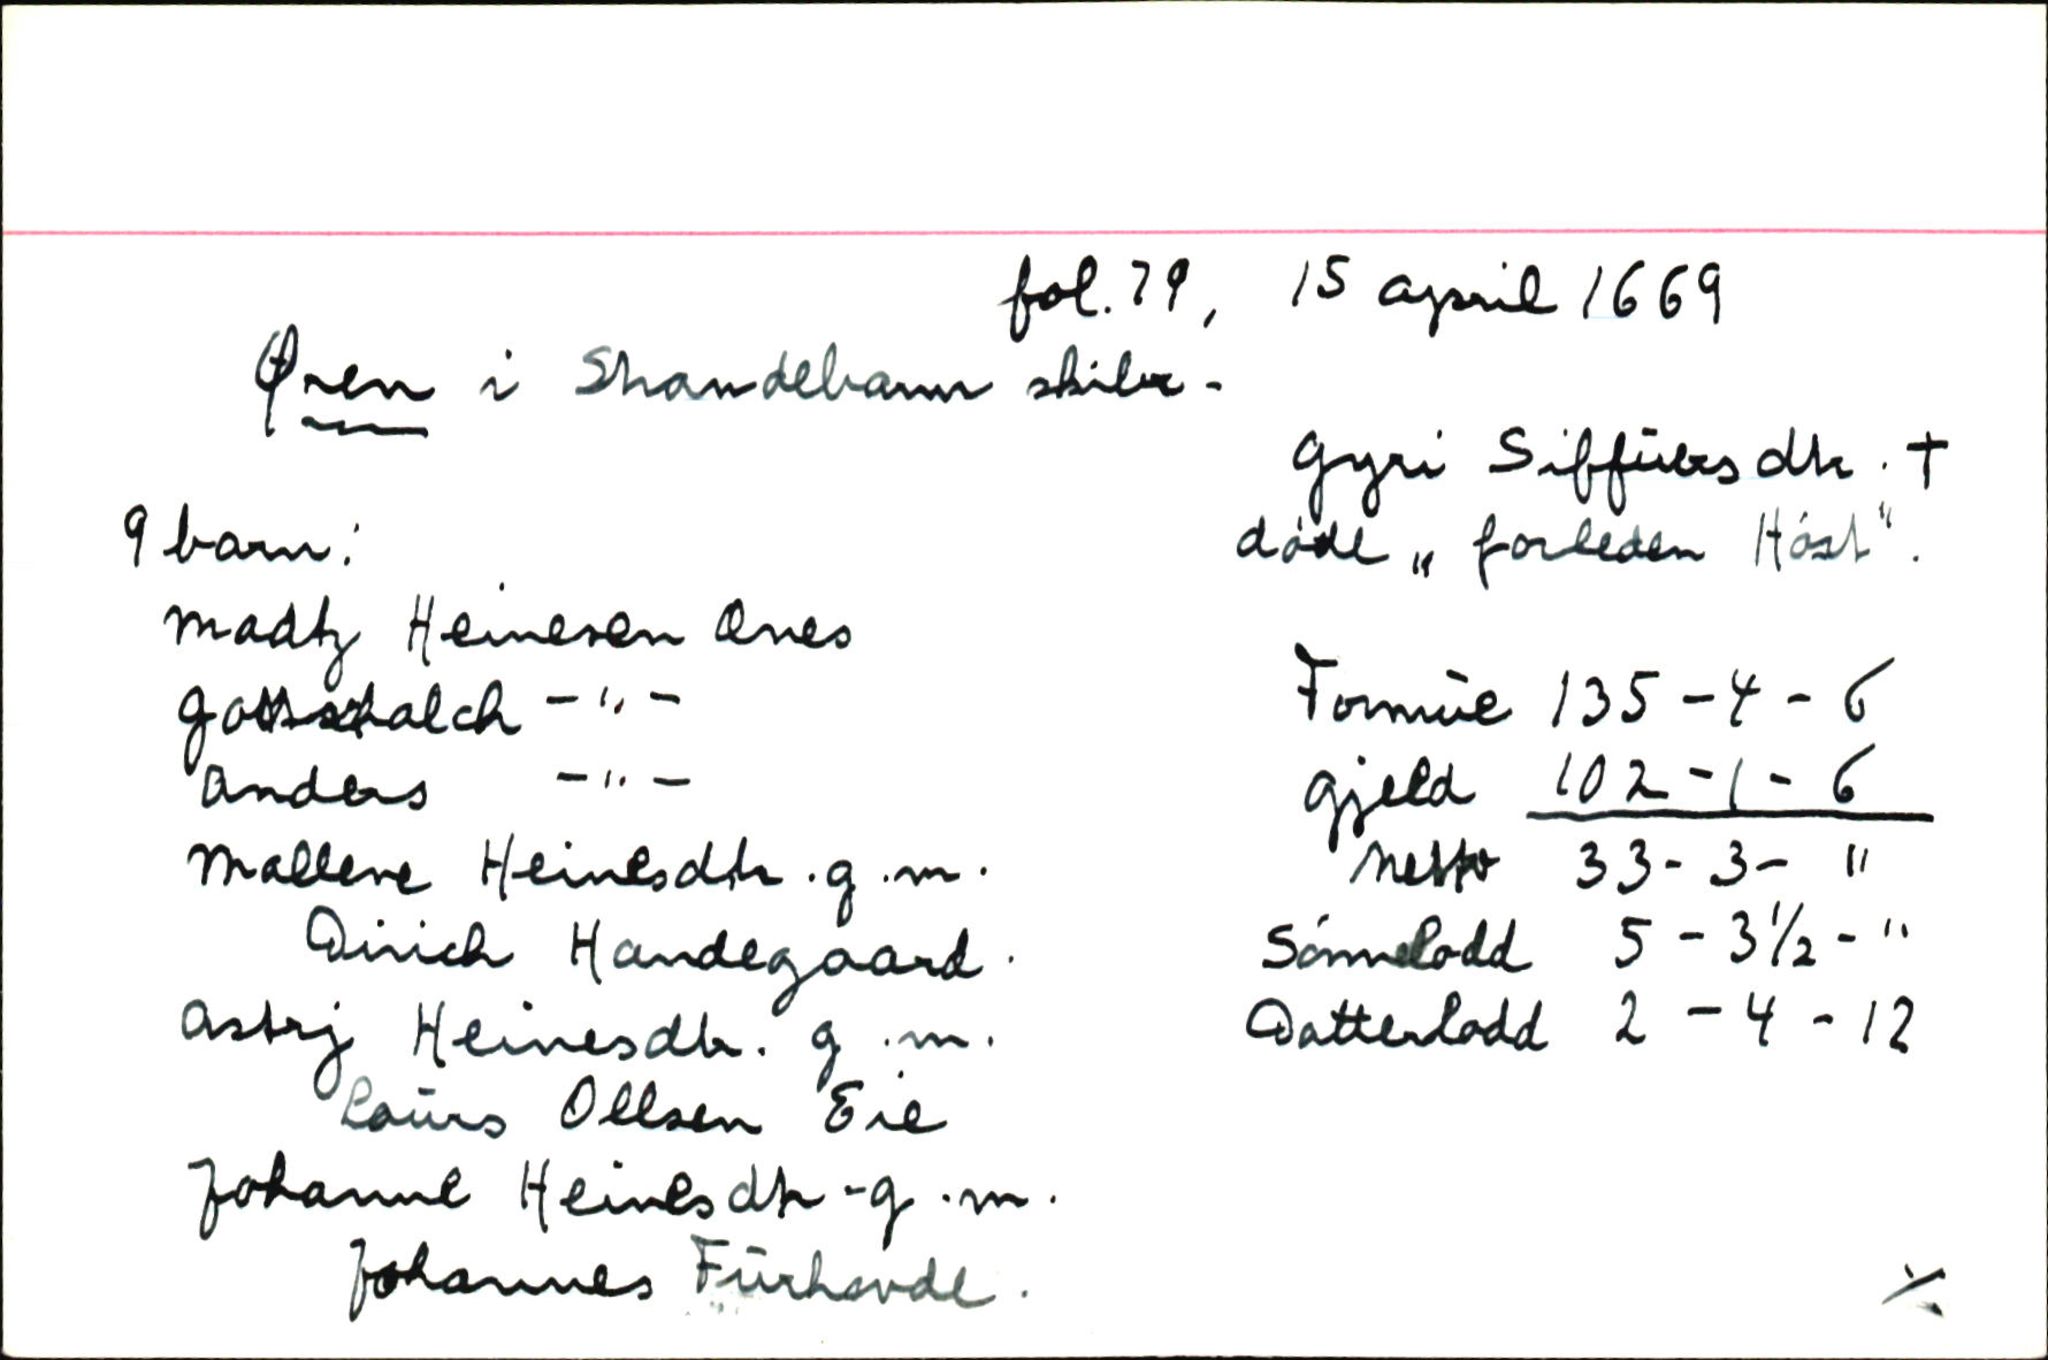 fol. 79, 15 april 1669
Øren i Strandebarm skibr-
Gyri Siffüersdtr. †
døde „forleden Høst".
9 barn:
Madtz Heinesen Ønes
Gottschalch -"-
Anders -"-
Mallene Heinesdtr. g.m.
Dirich Handegaard.
Astrj Heinesdtr. g.m.
Laürs Ollsen Eie
Johanne Heinesdtr - g.m.
Johannes Fürhovde.
Formüe 135-4-6
Gjeld 102-1-6
Netto 33-3-"
Sønnelodd 5-3½-"
Datterlodd 2-4-12